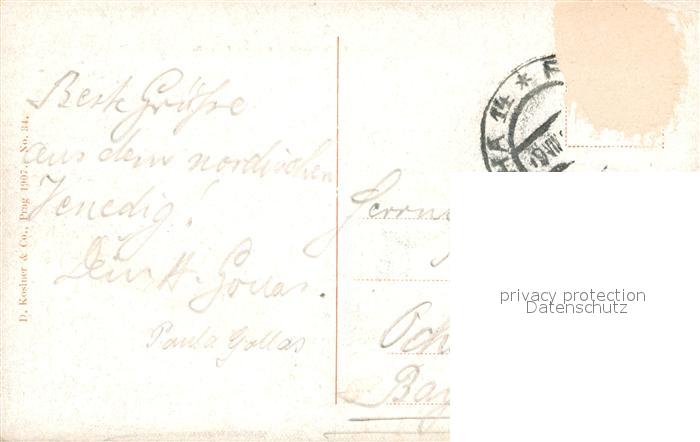 Beste Grüße
aus dem nordischen
Venedig!
Dein H. Gollas.
Paula Gollas
D. Kosiner & Co., Prag 1907. No. 34.
HA 14 *
19.VII
Herrn
Och
Bay
privacy protection
Datenschutz